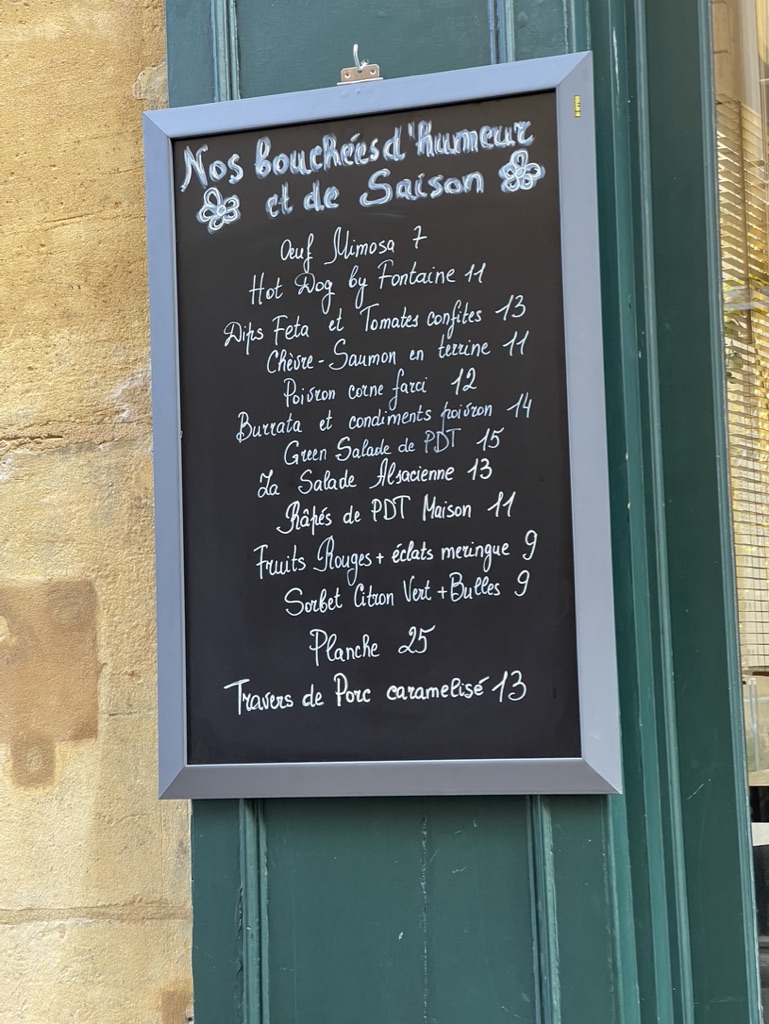 Nos bouchées d'humeur
et de Saison
Œuf Mimosa 7
Hot Dog by Fontaine 11
Dips Feta et Tomates confites 13
Chèvre-Saumon en terrine 11
Poivron corne farci 12
Burrata et condiments poivron 14
Green Salade de PDT 15
La Salade Alsacienne 13
Râpés de PDT Maison 11
Fruits Rouges + éclats meringue 9
Sorbet Citron Vert + Bulles 9
Planche 25
Travers de Porc caramelisé 13